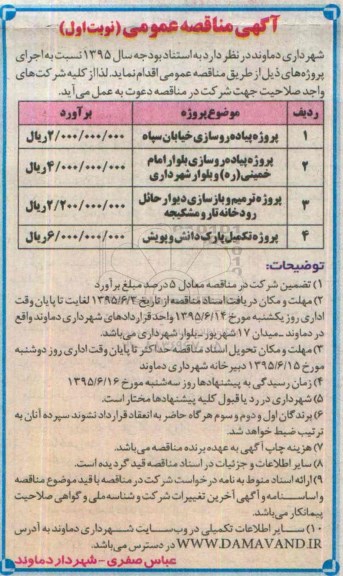 آگهی مناقصه عمومی (نوبت اول)
شهرداری دماوند در نظر دارد به استناد بودجه سال ۱۳۹۵ نسبت به اجرای
پروژه‌های ذیل از طریق مناقصه عمومی اقدام نماید. لذا از کلیه شرکت‌های
واجد صلاحیت جهت شرکت در مناقصه دعوت به عمل می‌آید.
ردیف موضوع پروژه برآورد
۱ پروژه پیاده‌روسازی خیابان سپاه ۲/۰۰۰/۰۰۰/۰۰۰ ریال
۲ پروژه پیاده‌روسازی بلوار امام خمینی(ره) و بلوار شهرداری ۴/۰۰۰/۰۰۰/۰۰۰ ریال
۳ پروژه ترمیم و بازسازی دیوار حائل رودخانه تار و مشکیجه ۲/۲۰۰/۰۰۰/۰۰۰ ریال
۴ پروژه تکمیل پارک دانش و پویش ۶/۰۰۰/۰۰۰/۰۰۰ ریال
توضیحات:
۱) تضمین شرکت در مناقصه معادل ۵ درصد مبلغ برآورد
۲) مهلت و مکان دریافت اسناد مناقصه از تاریخ ۱۳۹۵/۶/۲ لغایت تا پایان وقت
اداری روز یکشنبه مورخ ۱۳۹۵/۶/۱۴ واحد قراردادهای شهرداری دماوند واقع
در دماوند ـ میدان ۱۷ شهریور ـ بلوار شهرداری می‌باشد.
۳) مهلت و مکان تحویل اسناد مناقصه حداکثر تا پایان وقت اداری روز دوشنبه
مورخ ۱۳۹۵/۶/۱۵ دبیرخانه شهرداری دماوند
۴) زمان رسیدگی به پیشنهادها روز سه‌شنبه مورخ ۱۳۹۵/۶/۱۶
۵) شهرداری در رد یا قبول کلیه پیشنهادها مختار است.
۶) برندگان اول و دوم و سوم هرگاه حاضر به انعقاد قرارداد نشوند سپرده آنان به
ترتیب ضبط خواهد شد.
۷) هزینه چاپ آگهی به عهده برنده مناقصه می‌باشد.
۸) سایر اطلاعات و جزئیات در اسناد مناقصه قید گردیده است.
۹) ارائه اسناد منوط به نامه درخواست شرکت در مناقصه با قید موضوع مناقصه
و اساسنامه و آگهی آخرین تغییرات شرکت و شناسه ملی و گواهی صلاحیت
پیمانکار می‌باشد.
۱۰) سایر اطلاعات تکمیلی در وب‌سایت شهرداری دماوند به آدرس
WWW.DAMAVAND.IR در دسترس می‌باشد.
عباس صفری - شهردار دماوند